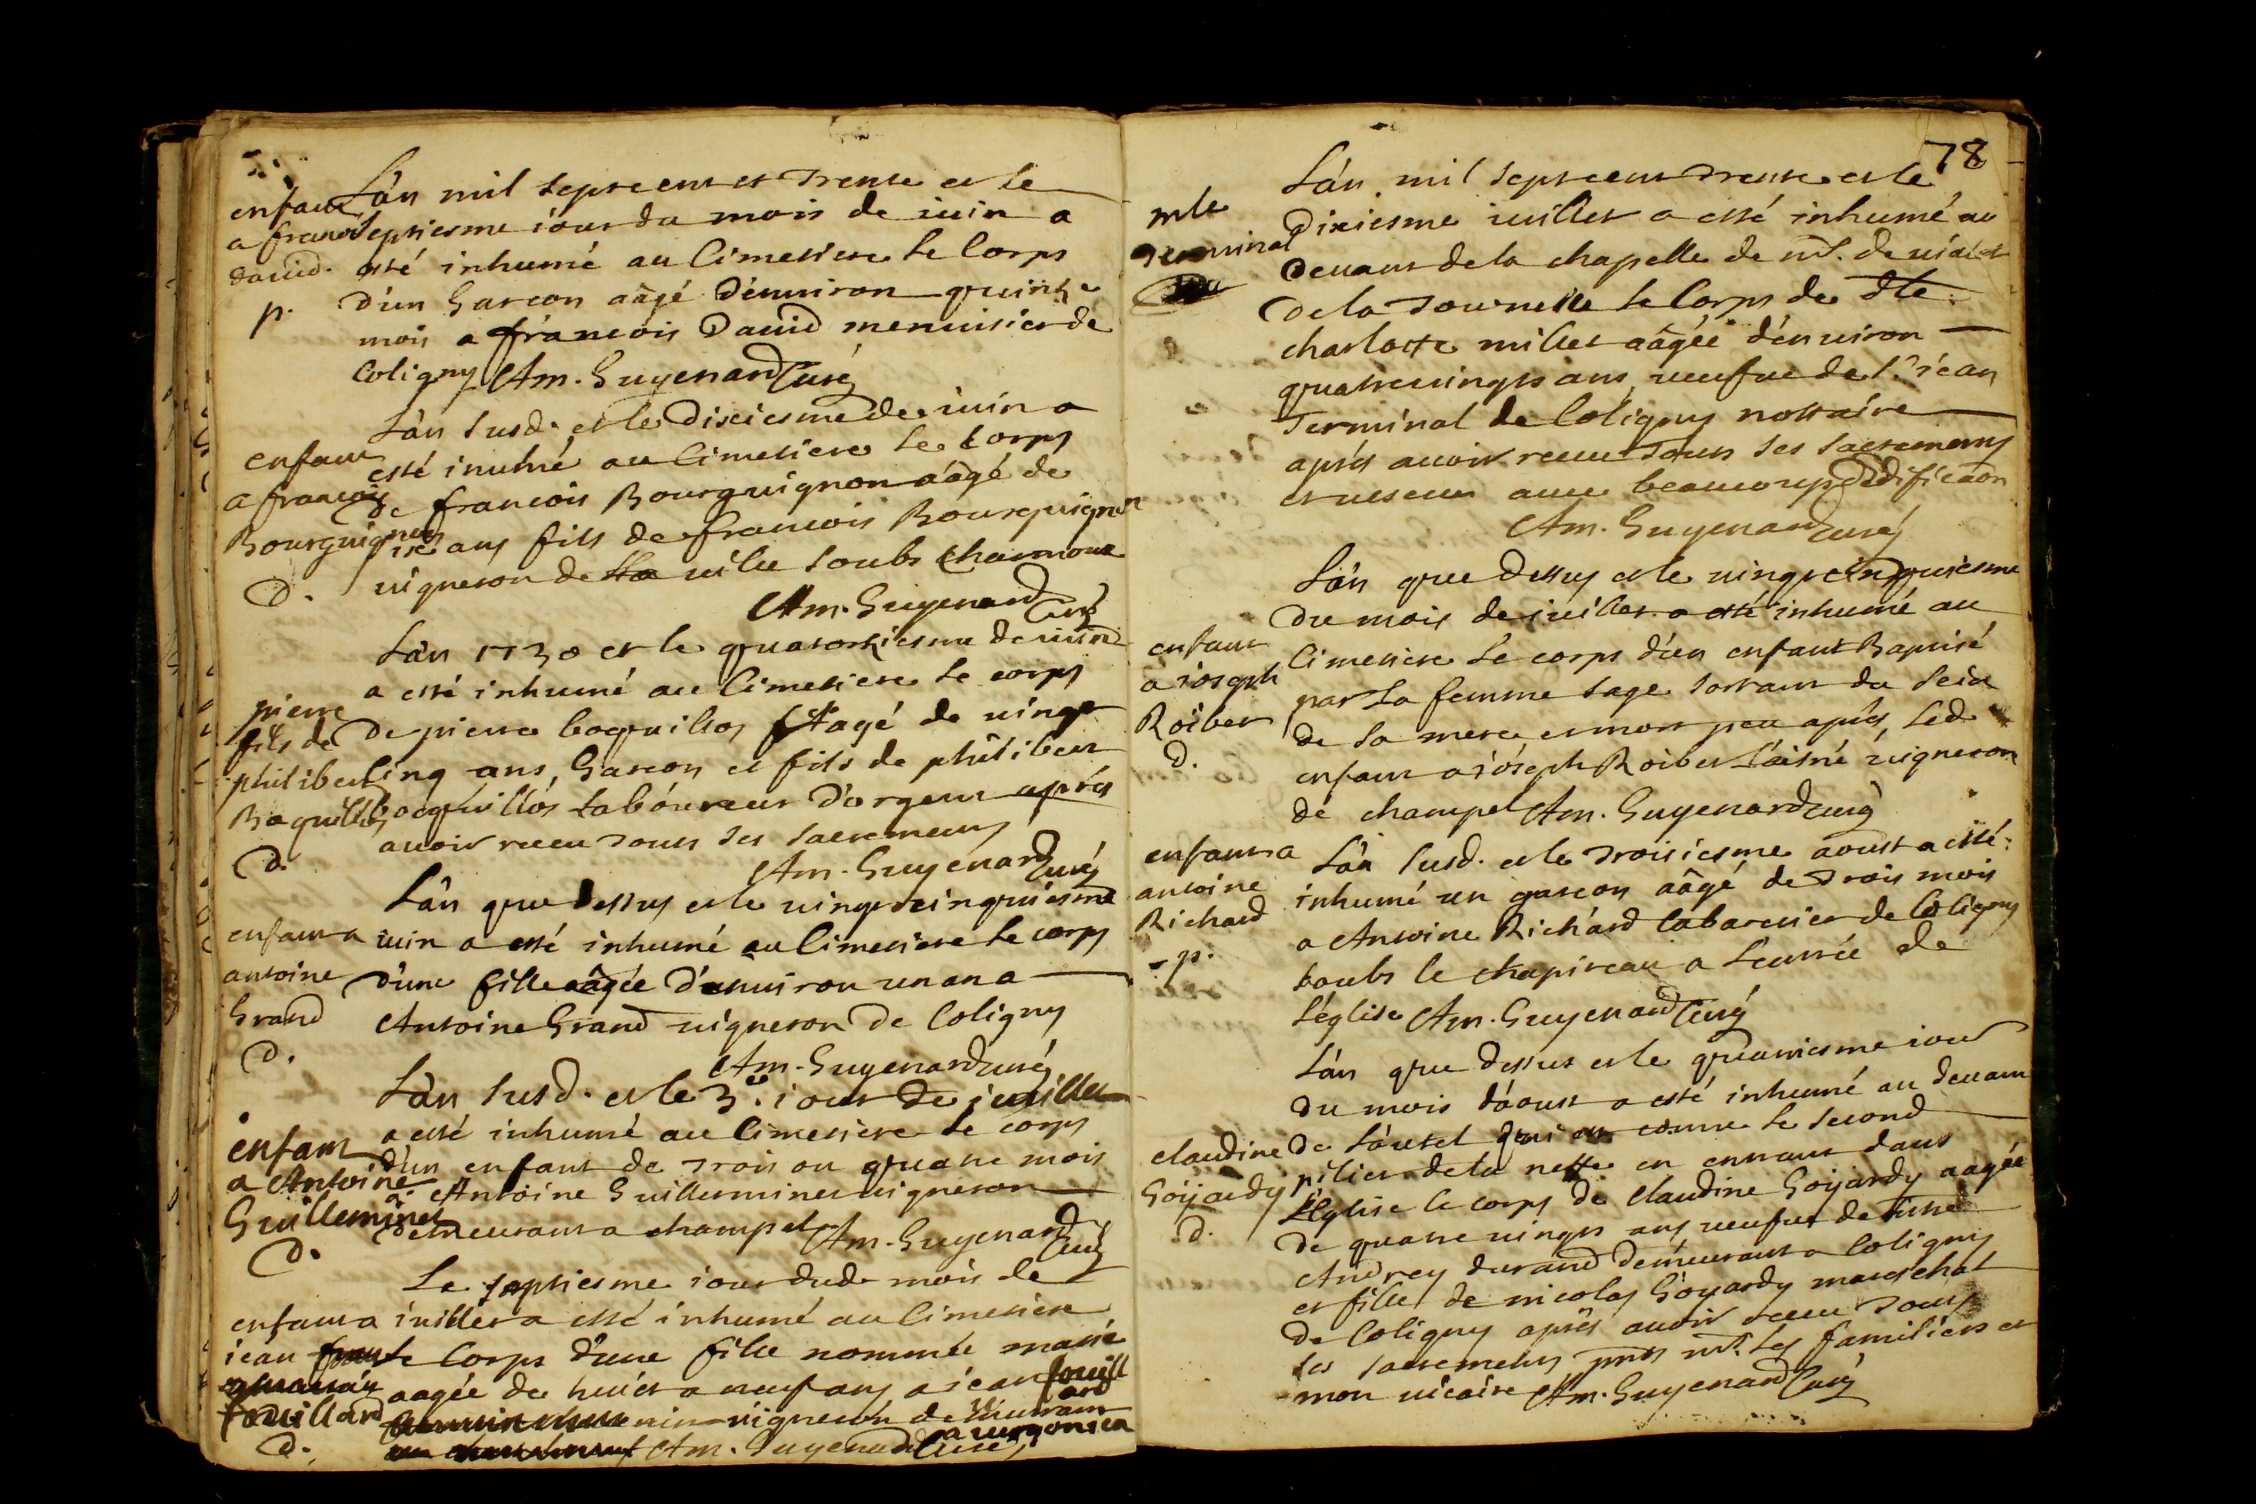 L'an mil sept cent et trente et le
enfant
a francois
david.
p.
septiesme iour du mois de iuin a
esté inhumé au Cimetiere le Corps
d'un Garcon aâgé d'enuiron quinze
mois a francois Dauid menuisier de
Coligny Am. Guyenard Curé
L'an susd. et le dixiesme de iuin a
enfant
a francois
Bourguignon
D.
esté inumé au Cimetiere le Corps
de francois Bourguignon aâgé de
six ans fils de francois Bourguignon
uigneron de uille soubs Charmoux
Am. Guyenard Curé
L'an 1730 et le quatorziesme de iuin
a esté inhumé au Cimetiere le corps
pierre
fils de
philibert
Boquillos
D.
de pierre boquillos aagé de uingt
cinq ans, Garcon et fils de philibert
bocquillos laboureur d'orgent aprés
auoir receu tous les sacremens
Am. Guyenard Curé
L'an que dessus et le uingt cinquiesme
enfant a
antoine
Grand
D.
iuin a esté inhumé au Cimetiere le corps
d'une fille aâgée d'enuiron un an a
Antoine Grand uigneron de Coligny
Am. Guyenard curé
L'an susd. et le 3e. iour de iuillet
enfant
a Antoine
Guilleminet
D.
a esté inhumé au Cimetiere le corps
d'un enfant de trois ou quatre mois
a Antoine Guilleminet uigneron
demeurant a champel Am. Guyenard Curé
Le septiesme iour dud. mois de
enfant a
iean
fouillard
D.
iuillet a esté inhumé au Cimetiere
le Corps d'une fille nommée marie
aagée de huict a neuf ans a iean fouillard
uigneron demeurant
a uergongea
Am. Guyenard Curé
78
L'an mil sept cent trente et le
mle
Terminal
dixiesme iuillet a esté inhumé au
deuant de la chapelle de nd. de uialet
de la Tournelle le Corps de dlle.
charlotte millet aâgée d'enuiron
quatre uingts ans ueufue de Sr iean
Terminal de Coligny nottaire
aprés auoir receu tous les sacremens
et uescu auec beaucoup d'édification
Am. Guyenard curé
L'an que dessus et le uingt cinquiesme
du mois de iuillet a esté inhumé au
enfant
a ioseph
Roibet
D.
Cimetiere le corps d'un enfant Baptisé
par la femme sage sortant du sein
de sa mere et mort peu aprés, led.
enfant a ioseph Roibet l'aisné uigneron
de champel Am. Guyenard curé
enfant a
antoine
Richard
p.
L'an susd. et le troisiesme aoust a esté
inhumé un garcon aâgé de trois mois
a Antoine Richard Cabaretier de Coligny
soubs le chapiteau a l'entrée de
l'église Am. Guyenard Curé
L'an que dessus et le quatriesme iour
du mois d'aoust a esté inhumé au deuant
claudine
Goyardy
D.
de l'autel qui est contre le second
pilier de la neffe en entrant dans
l'Eglise le corps de Claudine Goyardy aagée
de quatre uingts ans ueufue de
Andrey durand demeurant a Coligny
et fille de nicolas Goyardy mareschal
de Coligny aprés auoir receu tous
les sacremens pnts mrs. les familiers et
mon uicaire Am. Guyenard Curé